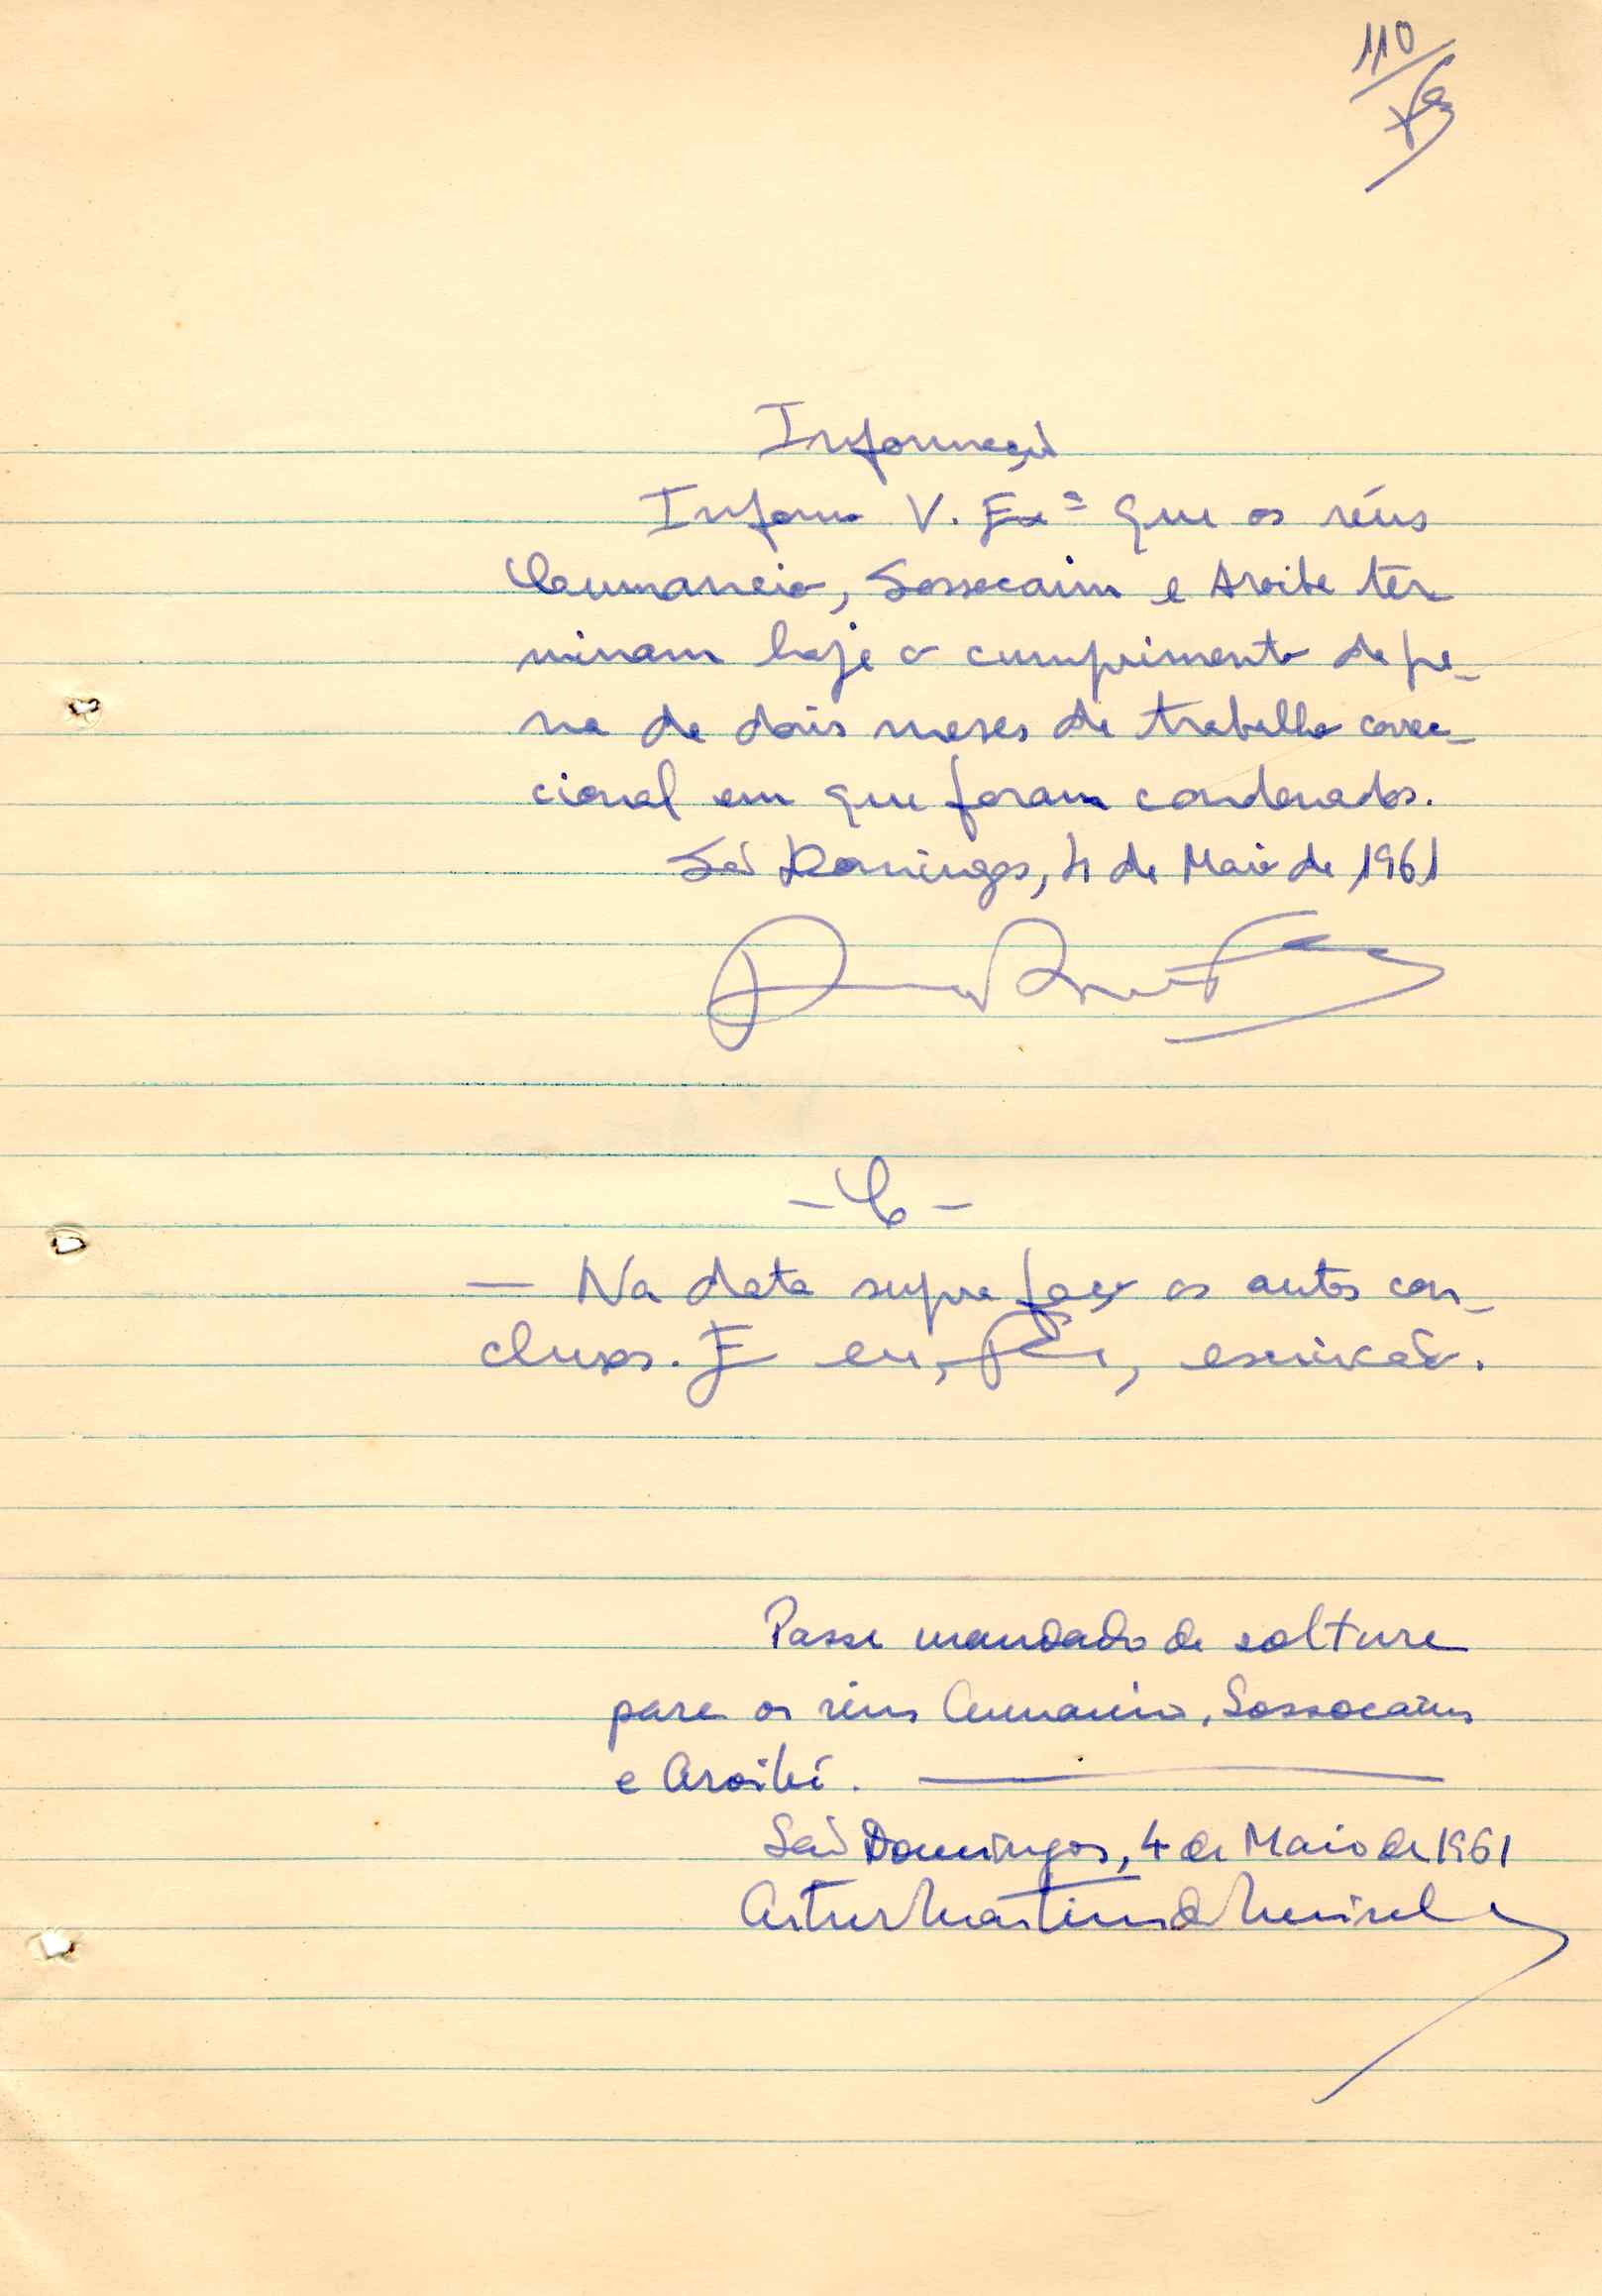 110
Informação
Informo V. Exª que os réus
Cumancio, Sossocaim e Aroibe ter
minam hoje o cumprimento da pe-
na de dois meses de trabalho correc-
cional em que foram condenados.
São Domingos, 4 de Maio de 1961
- C -
— Na data supra faço os autos con-
clusos. E eu, , escrivão.
Passe mandado de soltura
para os réus Sossocaim
e Aroibi.
São Domingos, 4 de Maio de 1961
Artur Martins de